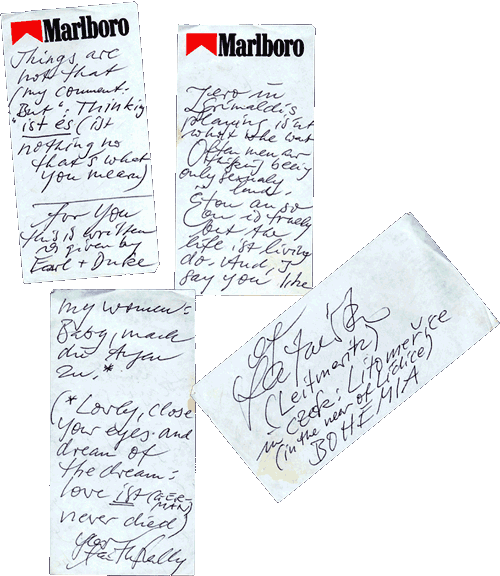 Marlboro
Things are
not that
(my comment.
But": Thinking
"ist es (ist
nothing no
that's what
you mean)
for you
this is written
as given by
Earl + Duke
Marlboro
in
playing isn't
what she was
Often men are
being
only sexualy
kind.
an so
can is
but the
life ist living
do. And, I
say you like
my women:
Baby, mach
die Augen
zu.*
(*Lovly, close
your eyes and
dream of
the dream:
love ist (GER-
MAN)
never died)
your
faithfully
(Leitmeritz)
in Czek: Litoměřice
(in the near of Lidice)
BOHEMIA